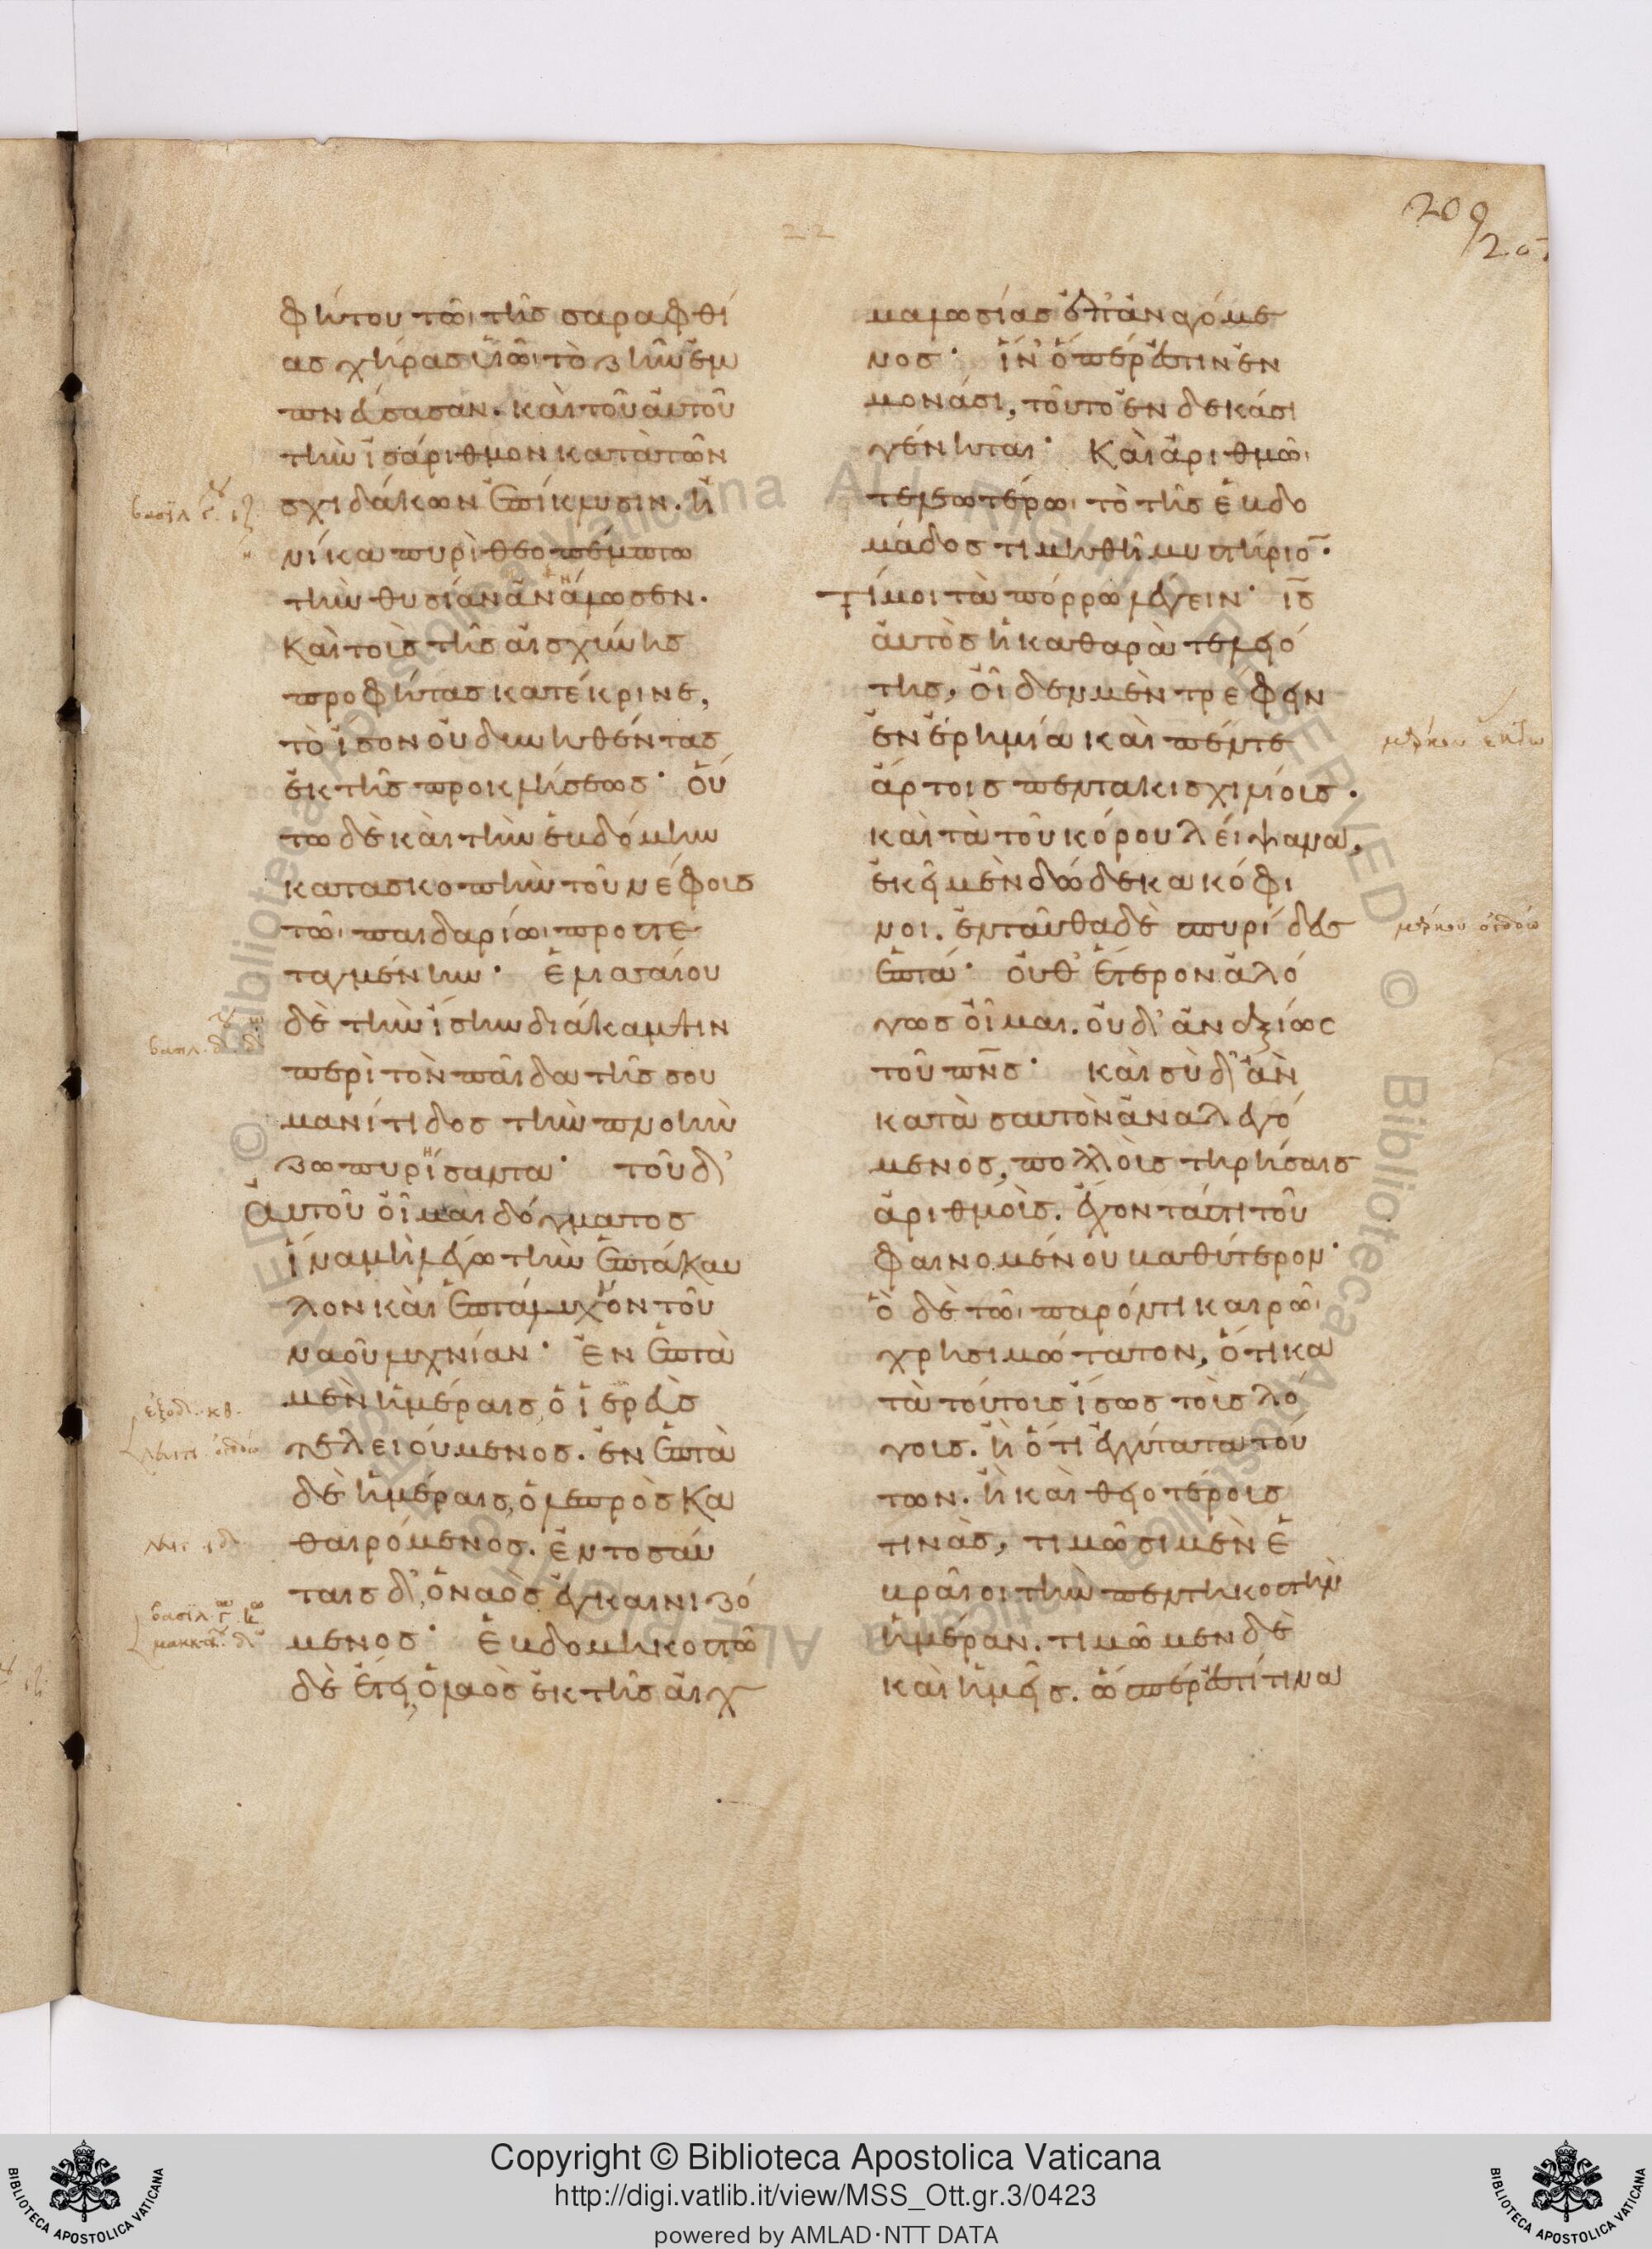 209
207
22
φήτου τῶι τῆς σαραφθί
ας χήρας υἱῶι τὸ ζῆν ἐμ
πνεύσασαν. καὶ τοῦ αὐτοῦ
τὴν ἰσάριθμον κατὰ τῶν
σχιδάκων ἐπίκλυσιν. ἡ
νίκα πυρὶ θεοπέμπτω
τὴν θυσίαν ἀνάλωσεν.
Καὶ τοὺς τῆς αἰσχύνης
προφήτας κατέκρινε,
τὸ ἴσον οὐ δυνηθέντας
ἐκ τῆς προκλήσεως· οὕ
τω δὲ καὶ τὴν ἑβδόμην
κατασκοπὴν τοῦ νέφους
τῶι παιδαρίωι προστε
ταγμένην· Ἐλισσαίου
δὲ τὴν ἴσην διάκαμψιν
περὶ τὸν παῖδα τῆς σου
μανίτιδος τὴν πνοὴν
ζωπυρήσαντα· τοῦ δ'
αὐτοῦ οἶμαι δόγματος
ἵνα μὴ λέγω τὴν ἑπτάκαυ
λον καὶ ἑπτάλυχνον τοῦ
ναοῦ λυχνίαν· Ἐν ἑπτὰ
μὲν ἡμέραις, ὁ ἱερεὺς
τελειούμενος. ἐν ἑπτὰ
δὲ ἡμέραις, ὁ λεπρὸς κα
θαιρόμενος. ἐν τοσαύ
ταις δ', ὁ ναὸς ἐγκαινιζό
μενος· Ἑβδομηκοστῶ
δὲ ἔτει, ὁ λαὸς ἐκ τῆς αἰχ
μαλωσίας ἐπαναγόμε
νος· ἵν' ὅπερ ἐστὶν ἐν
μονάσι, τοῦτο ἐν δεκάσι
γένηται· Καὶ ἀριθμῶι
τελεωτέρωι τὸ τῆς ἑβδο
μάδος τιμηθῆ μυστήριον·
Τί μοι τὰ πόρρω λέγειν· ἰς
αὐτὸς ἡ καθαρὰ τελειό
της, οἶδεν μὲν τρέφειν
ἐν ἐρημία καὶ πέντε
ἄρτοις πεντακισχιλίους.
καὶ τὰ τοῦ κόρου λείψανα,
ἐκεῖ μὲν δώδεκα κόφι
νοι. ἐνταῦθα δὲ σπυρίδες
ἑπτά· οὐθ' ἕτερον ἀλό
γως οἶμαι. οὐδ' ἀναξίως
τοῦ πνς· καὶ σὺ δ' ἂν
κατὰ σαυτὸν ἀναλεγό
μενος, πολλοὺς τηρήσαις
ἀριθμοὺς. ἔχοντάς τι τοῦ
φαινομένου βαθύτερον·
ὃ δὲ τῶι παρόντι καιρῶι
χρησιμώτατον, ὅτι κα
τὰ τούτους ἴσως τοὺς λό
γους. ἢ ὅτι ἐγγύτατα τού
των. ἢ καὶ θειοτέρους
τινὰς, τιμῶσι μὲν ἑ
βραῖοι τὴν πεντηκοστὴν
ἡμέραν. τιμῶμεν δὲ
καὶ ἡμεῖς. ὥσπερ ἐστί τινα
Copyright © Biblioteca Apostolica Vaticana
http://digi.vatlib.it/view/MSS_Ott.gr.3/0423
powered by AMLAD·NTT DATA
BIBLIOTECA APOSTOLICA VATICANA
BIBLIOTECA APOSTOLICA VATICANA